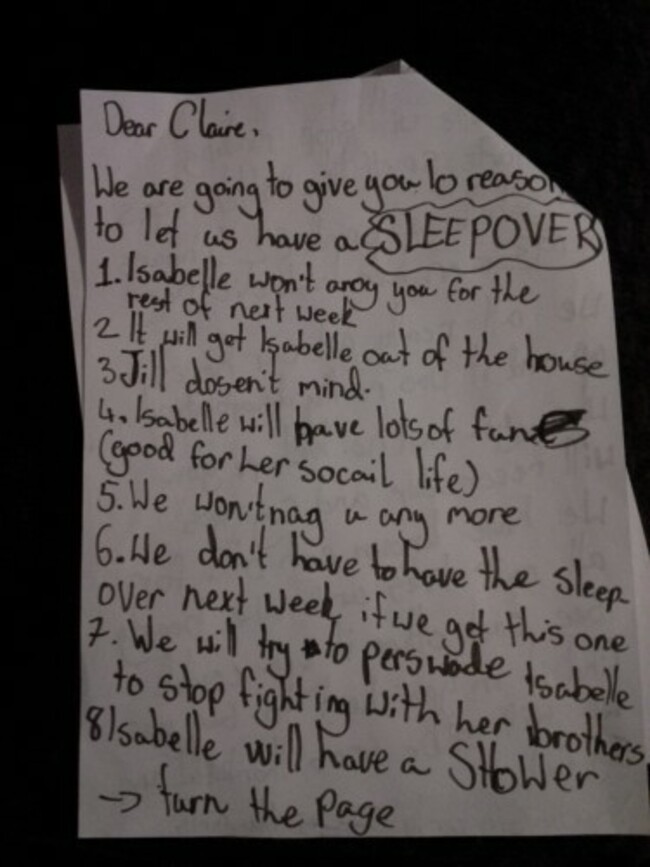 Dear Claire,
We are going to give you 10 reason
to let us have a SLEEPOVER
1. Isabelle won't anoy you for the
rest of next week
2 It will get Isabelle out of the house
3 Jill dosen't mind.
4. Isabelle will have lots of fun
(good for her socail life)
5. We won't nag u any more
6. We don't have to have the sleep-
over next week if we get this one
7. We will try to perswade Isabelle
to stop fighting with her brothers
8 Isabelle will have a SHOWER
→ turn the page